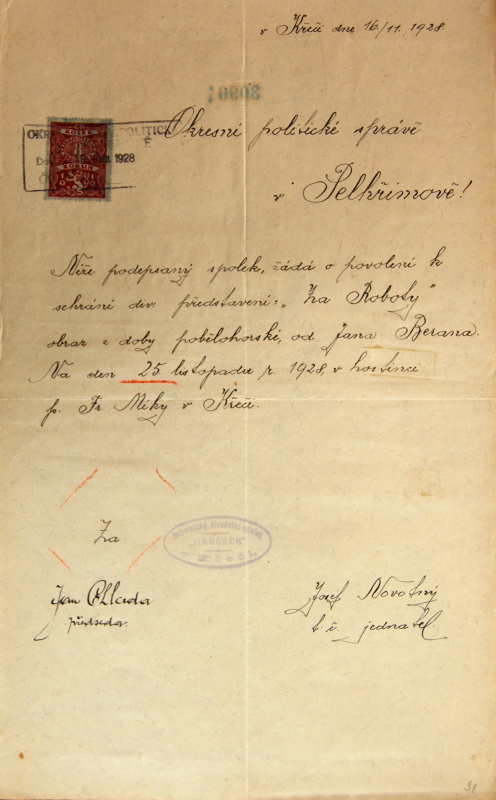 v Křči dne 16/11. 1928.
Okresní politické správě
v Pelhřimově!
Níže podepsaný spolek, žádá o povolení k
sehrání div. představení: „Za Roboty"
obraz z doby pobělohorské, od Jana Berana.
Na den 25 listopadu r. 1928, v hostinci
p. Fr Miky v Křči.
Za
"JINOČECH"
Jan
předseda.
Josef Novotný
t. č. jednatel.
KOLEK
1928
31